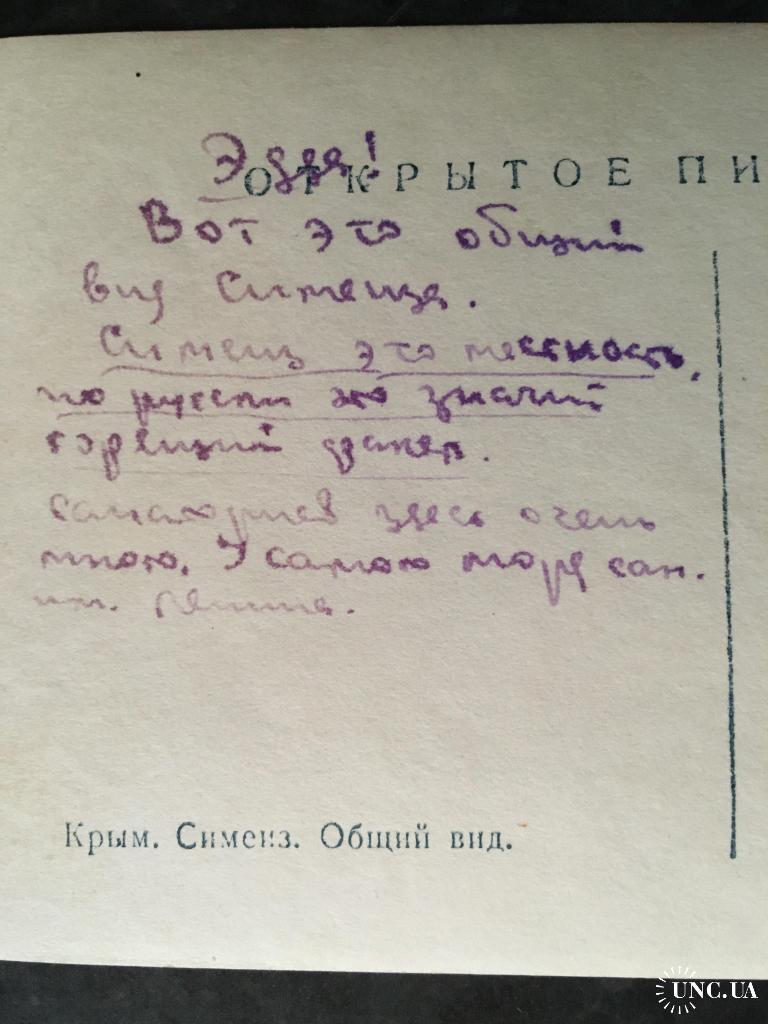 Эдда!
ОТКРЫТОЕ ПИ
Вот это общий
вид Симеиза.
Симеиз это местность,
по русски это значит
горящий факел.
санаториев здесь очень
много. У самого моря сан.
им. Ленина.
Крым. Симеиз. Общий вид.
UNC.UA